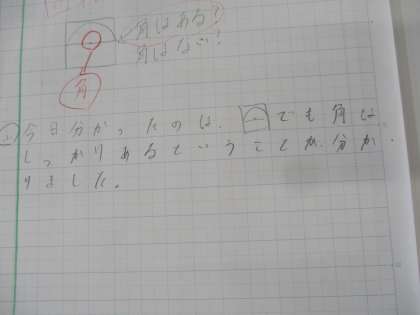 角はある!
角はない!
角
今日分かったのは、でも角は
しっかりあるということが分か
りました。